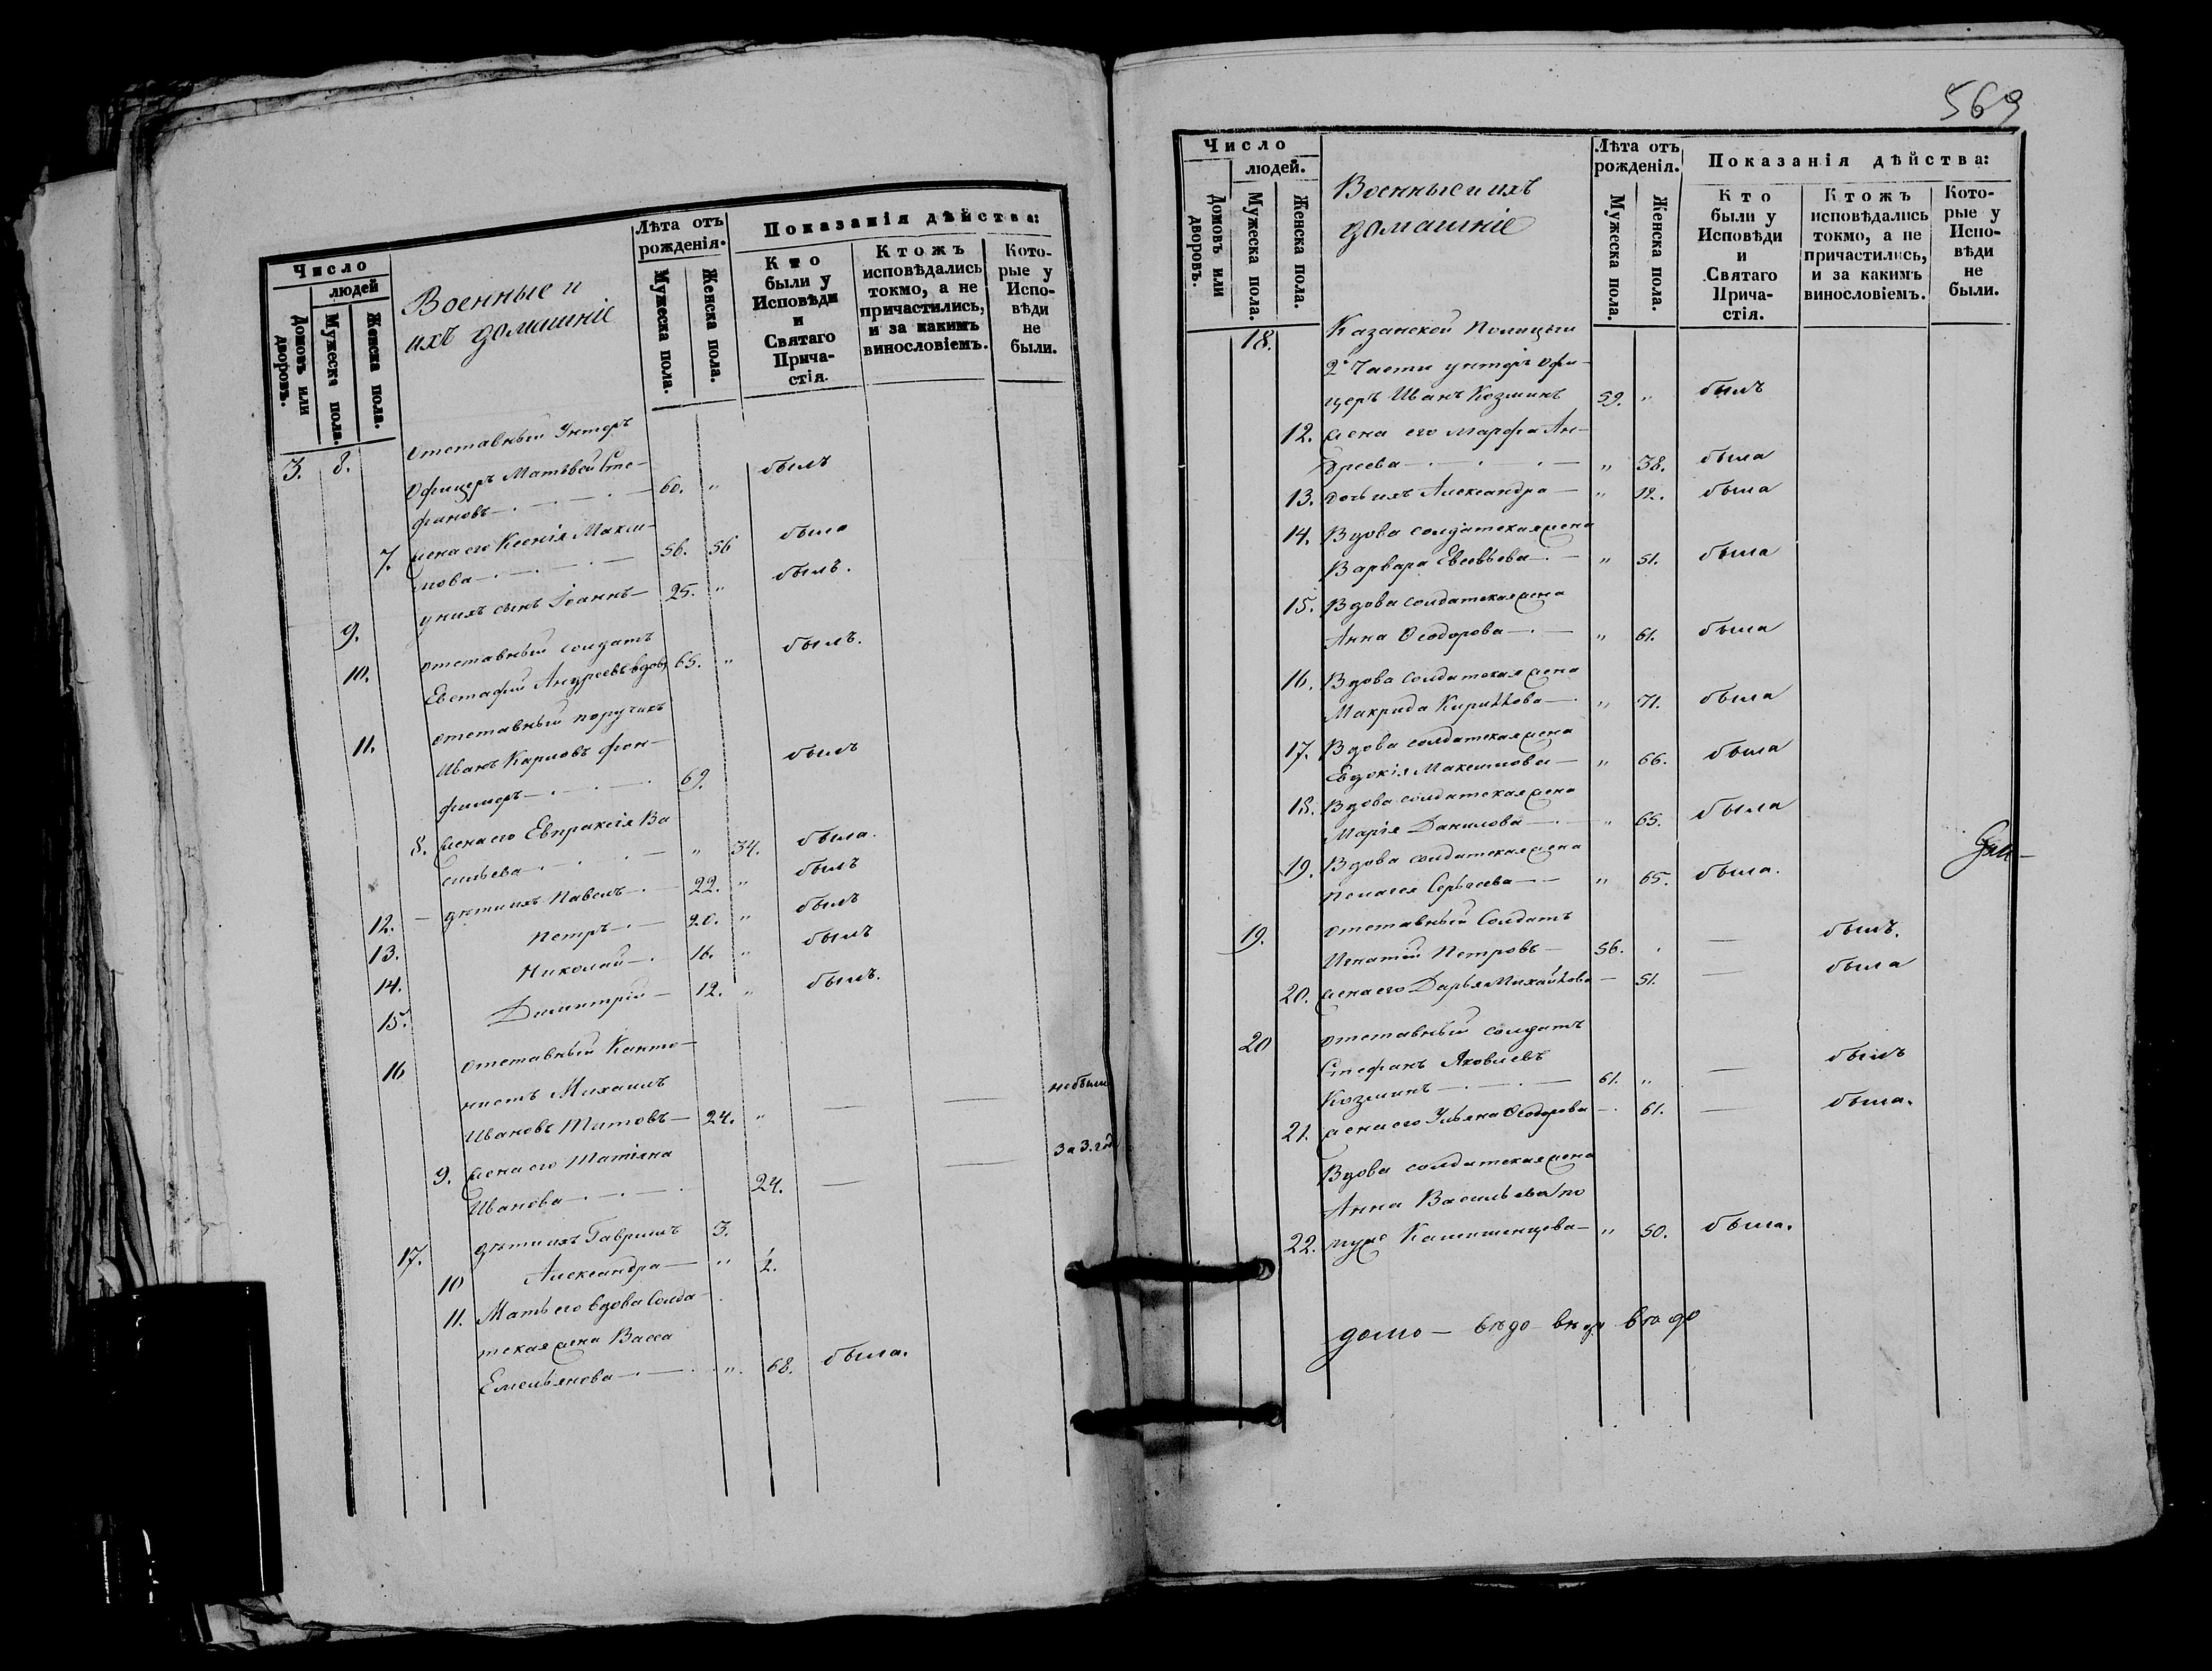 Число
людей
Домовъ или дворовъ.
Мужеска пола.
Женска пола.
Военные и
ихъ домашніе
Лѣта отъ
рожденія.
Мужеска пола.
Женска пола.
Показанія дѣйства:
Кто
были у
Исповѣди
и
Святаго
Прича-
стія.
Ктожъ
исповѣдались
токмо, а не
причастились,
и за какимъ
винословіемъ.
Кото-
рые у
Испо-
вѣди
не
были.
3. 8. Отставный Унтеръ
Офицеръ Матвей Сте-
фановъ 60. " былъ
7. жена его Ксенія Макси-
мова 56. 56 была
9. у нихъ сынъ Іоаннъ 25. " былъ.
10. Отставный солдатъ
Евстафий Андреевъ вдовъ 65. " былъ.
11. Отставный поручикъ
Иванъ Карловъ фон-
69. былъ
8. жена его Евпраксія Ва
сильева " 34. была.
12. дѣти ихъ Павелъ 22. " былъ
13. Петръ 20. " былъ
14. Николай 16. " былъ
15. Димитрій 12. " былъ.
16 Отставный Канто-
нистъ Михаилъ
Ивановъ Титовъ 24. " — — не были
9. жена его Татіяна
Иванова 24. — — за 3. год
17. дѣти ихъ Гавриилъ 3.
10 Александра " 2.
11. Мать его вдова Солда-
тская жена Васса
Емельянова " 68. была.
569
Число
людей.
Домовъ или дворовъ.
Мужеска пола.
Женска пола.
Военные и ихъ
домашніе
Лѣта отъ
рожденія.
Мужеска пола.
Женска пола.
Показанія дѣйства:
Кто
были у
Исповѣди
и
Святаго
Прича-
стія.
Ктожъ
исповѣдались
токмо, а не
причастились,
и за какимъ
винословіемъ.
Кото-
рые у
Испо-
вѣди
не
были.
18. Казанской Полицыи
2й Части унтеръ офи-
церъ Иванъ Козминъ 59. " былъ
12. жена его Марфа Ан-
дреева " 38. была
13. дочь ихъ Александра " 12. была
14. Вдова солдатская жена
Варвара Евсевьева " 51. была
15. Вдова солдатская жена
Анна Ѳеодорова " 61. была
16. Вдова солдатская жена
Макрида Кирилова " 71. была
17. Вдова солдатская жена
Евдокія Максимова " 66. была
18. Вдова солдатская жена
Марія Данилова " 65. была
19. Вдова солдатская жена
Пелагея Сергеева " 65. была.
19. Отставный Солдатъ
Игнатій Петровъ 56. — былъ.
20. жена его Дарья Михайлова 51. — была
20 Отставный солдатъ
Стефанъ Яковлевъ
Козминъ 61. " — былъ
21. жена его Ульяна Ѳеодорова 61. — была.
Вдова солдатская жена
Анна Васильева по
22. мужѣ " 50. была.